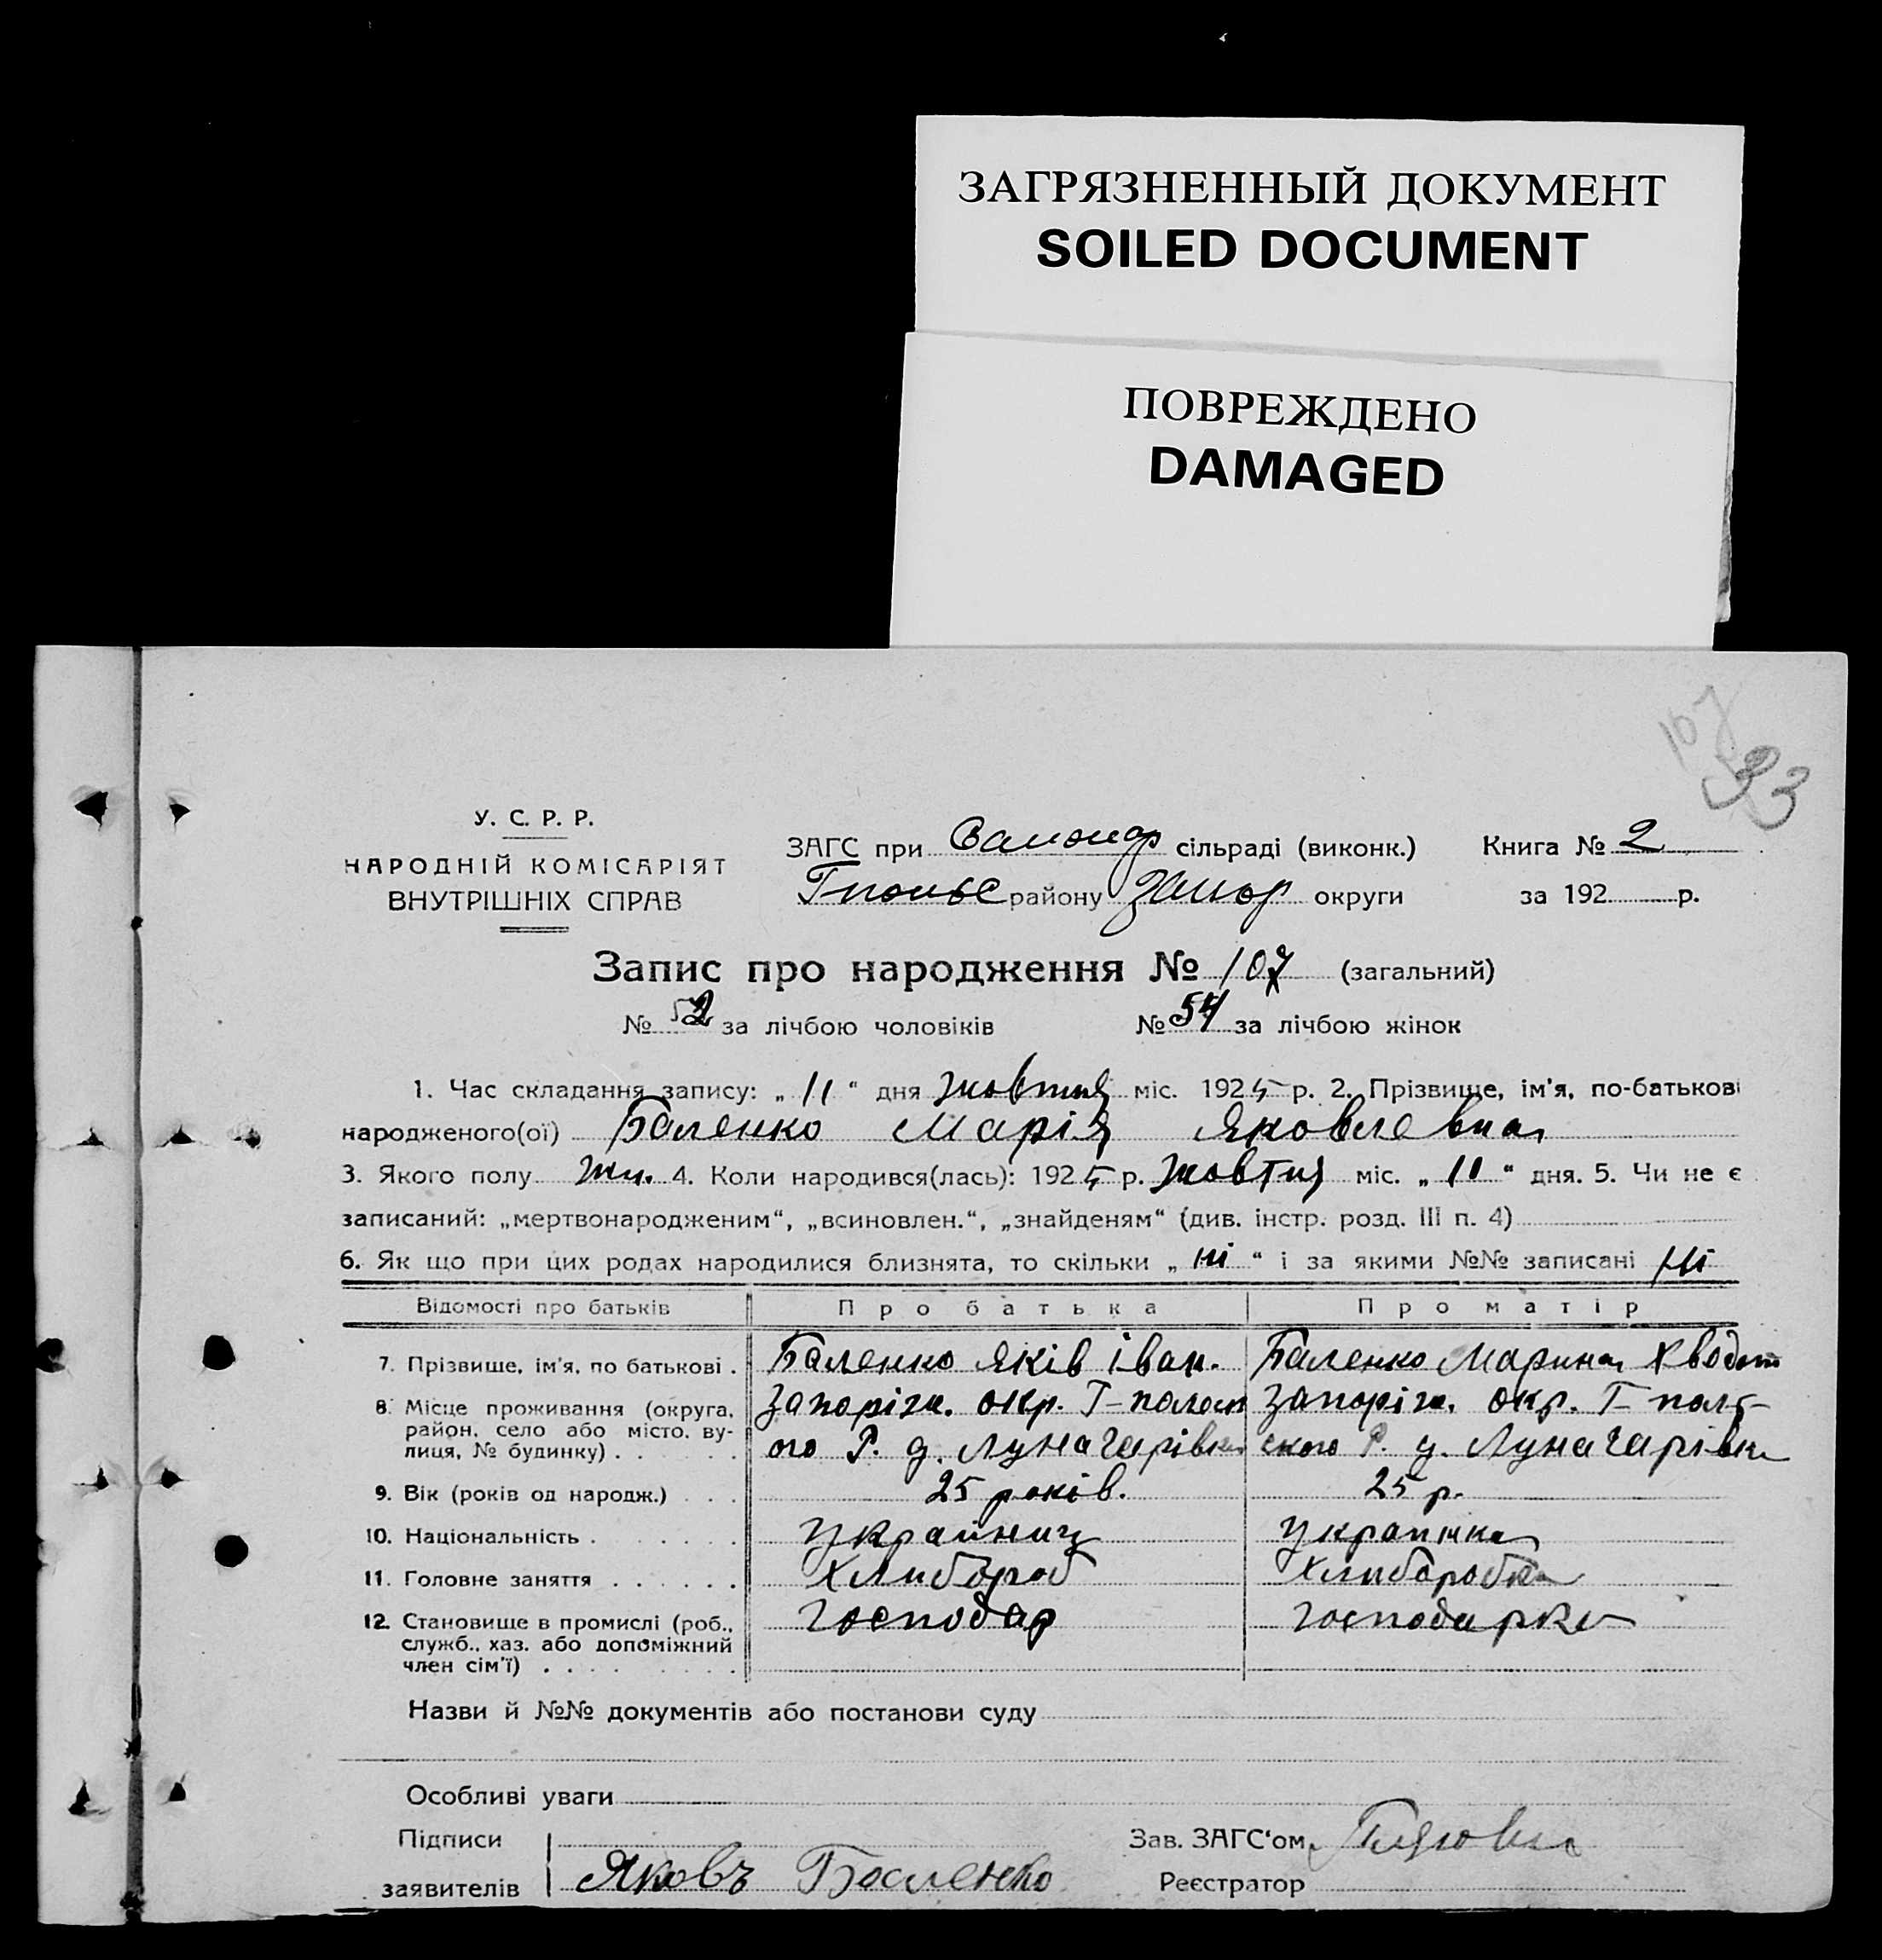 ЗАГРЯЗНЕННЫЙ ДОКУМЕНТ
SOILED DOCUMENT
ПОВРЕЖДЕНО
DAMAGED
107
33
У. С. Р. Р.
НАРОДНІЙ КОМІСАРІЯТ
ВНУТРІШНІХ СПРАВ
ЗАГС при сільраді (виконк.) Книга № 2
району Запор округи за 192 р.
Запис про народження № 107 (загальний)
№ 52 за лічбою чоловіків № 54 за лічбою жінок
1. Час складання запису: „ 11 “ дня жовтня міс. 1925 р. 2. Прізвище, ім'я, по-батькові
народженого(ої) Баленко Марія Яковлевна
3. Якого полу жи. 4. Коли народився(лась): 1925 р. жовтня міс. „ 11 “ дня. 5. Чи не є
записаний: „мертвонародженим“, „всиновлен.“, „знайденям“ (див. інстр. розд. III п. 4)
6. Як що при цих родах народилися близнята, то скільки „ ні “ і за якими №№ записані ні
Відомості про батьків Про батька Про матір
7. Прізвище, ім'я, по батькові . Баленко Яків Іван. Баленко Марина Хводот
8. Місце проживання (округа, район, село або місто, вулиця, № будинку) . Запоріж. окр. Г-полоск Запоріж. окр. Г-пол
ого Р. д. Луначарівка ського Р. д. Луначарівка
9. Вік (років од народж.) . . . 25 років. 25 р.
10. Національність . Украиниц Украинка
11. Головне заняття . . . . . . Хлибороб Хлиборобка
12. Становище в промислі (роб., служб., хаз. або допоміжний член сім'ї) . . . . Господар Господарка
Назви й №№ документів або постанови суду
Особливі уваги
Підписи Зав. ЗАГС‘ом
заявителів Яковъ Баленко Реєстратор